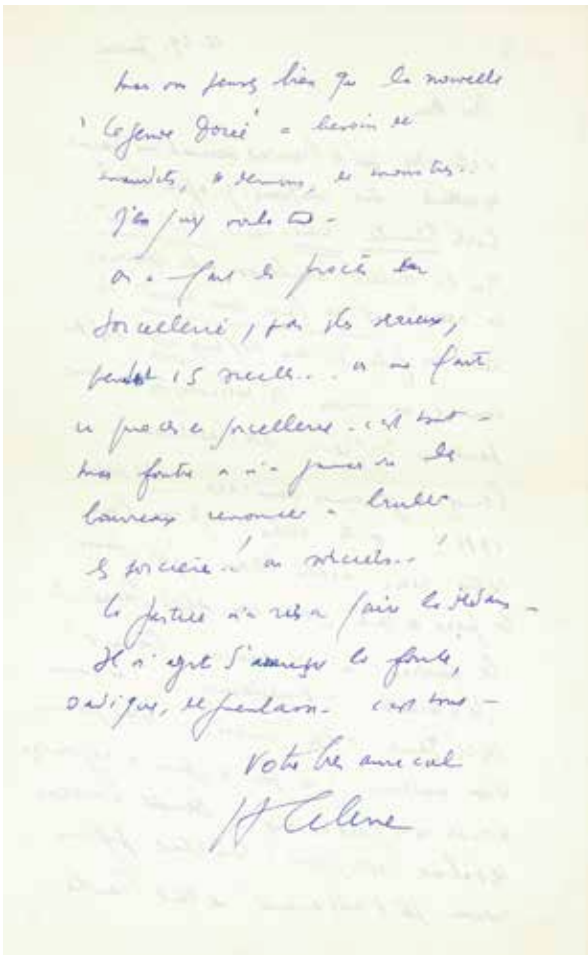 mais on pense bien que la nouvelle
"Légende Dorée" a besoin de
maudits, de démons, de monstres.
on a fait des procès en
sorcellerie, par des
pendant 15 siècles... on me fait
un procès en sorcellerie. c'est tout -
mais foutre on n'a jamais vu les
bourreaux renoncer à brûler
les sorcières! ou sorciers..
la justice n'a rien à faire là dedans -
Il s'agit d'amuser la foule,
sadique,
c'est tout -
Votre bien amical
LF Celine